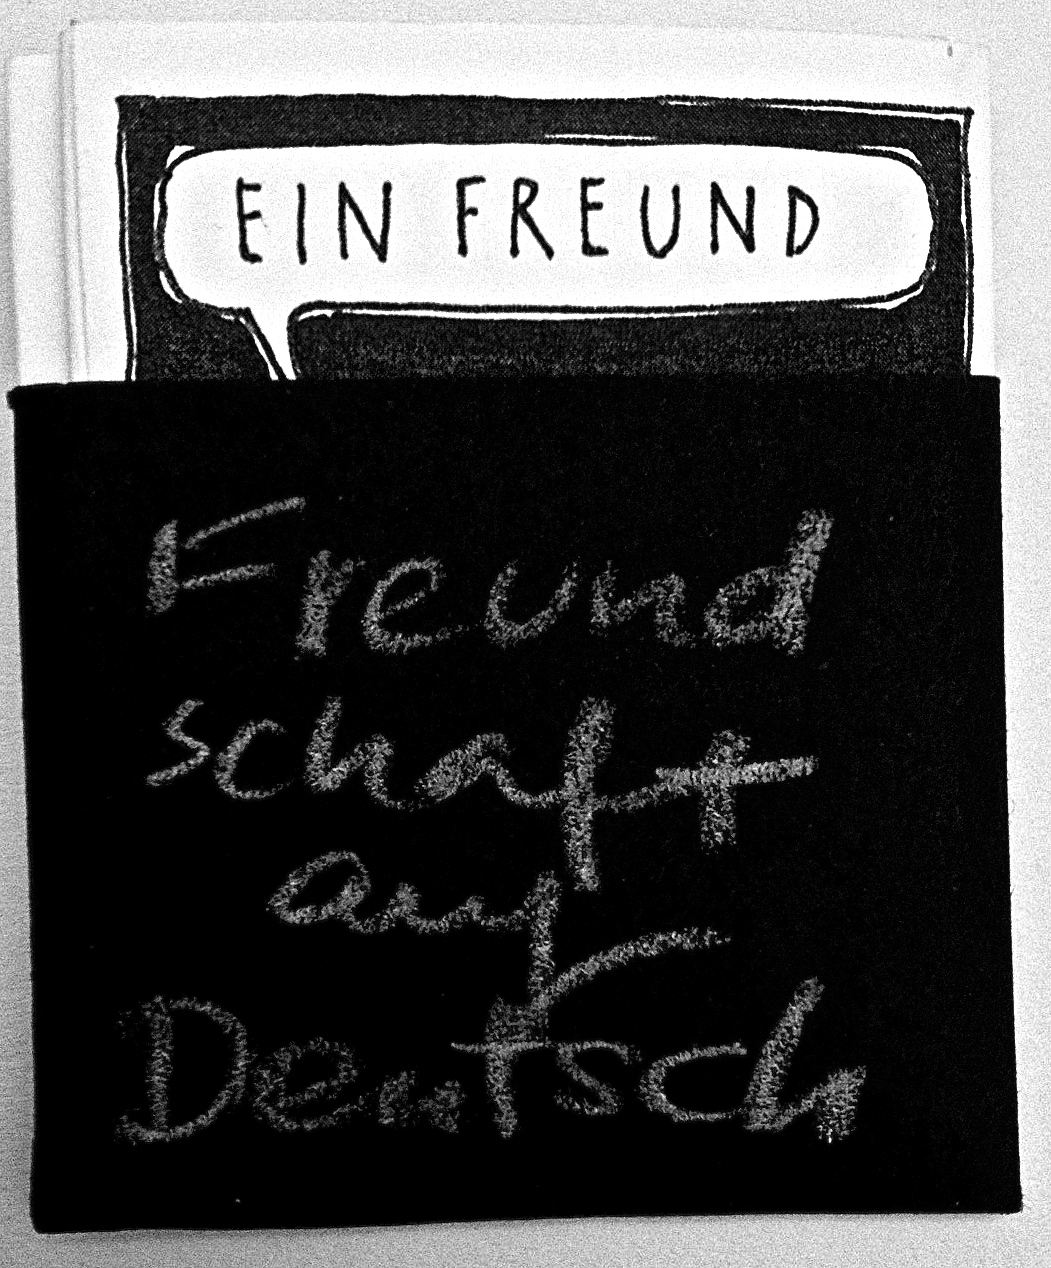 EIN FREUND
Freund
schaft
auf
Deutsch